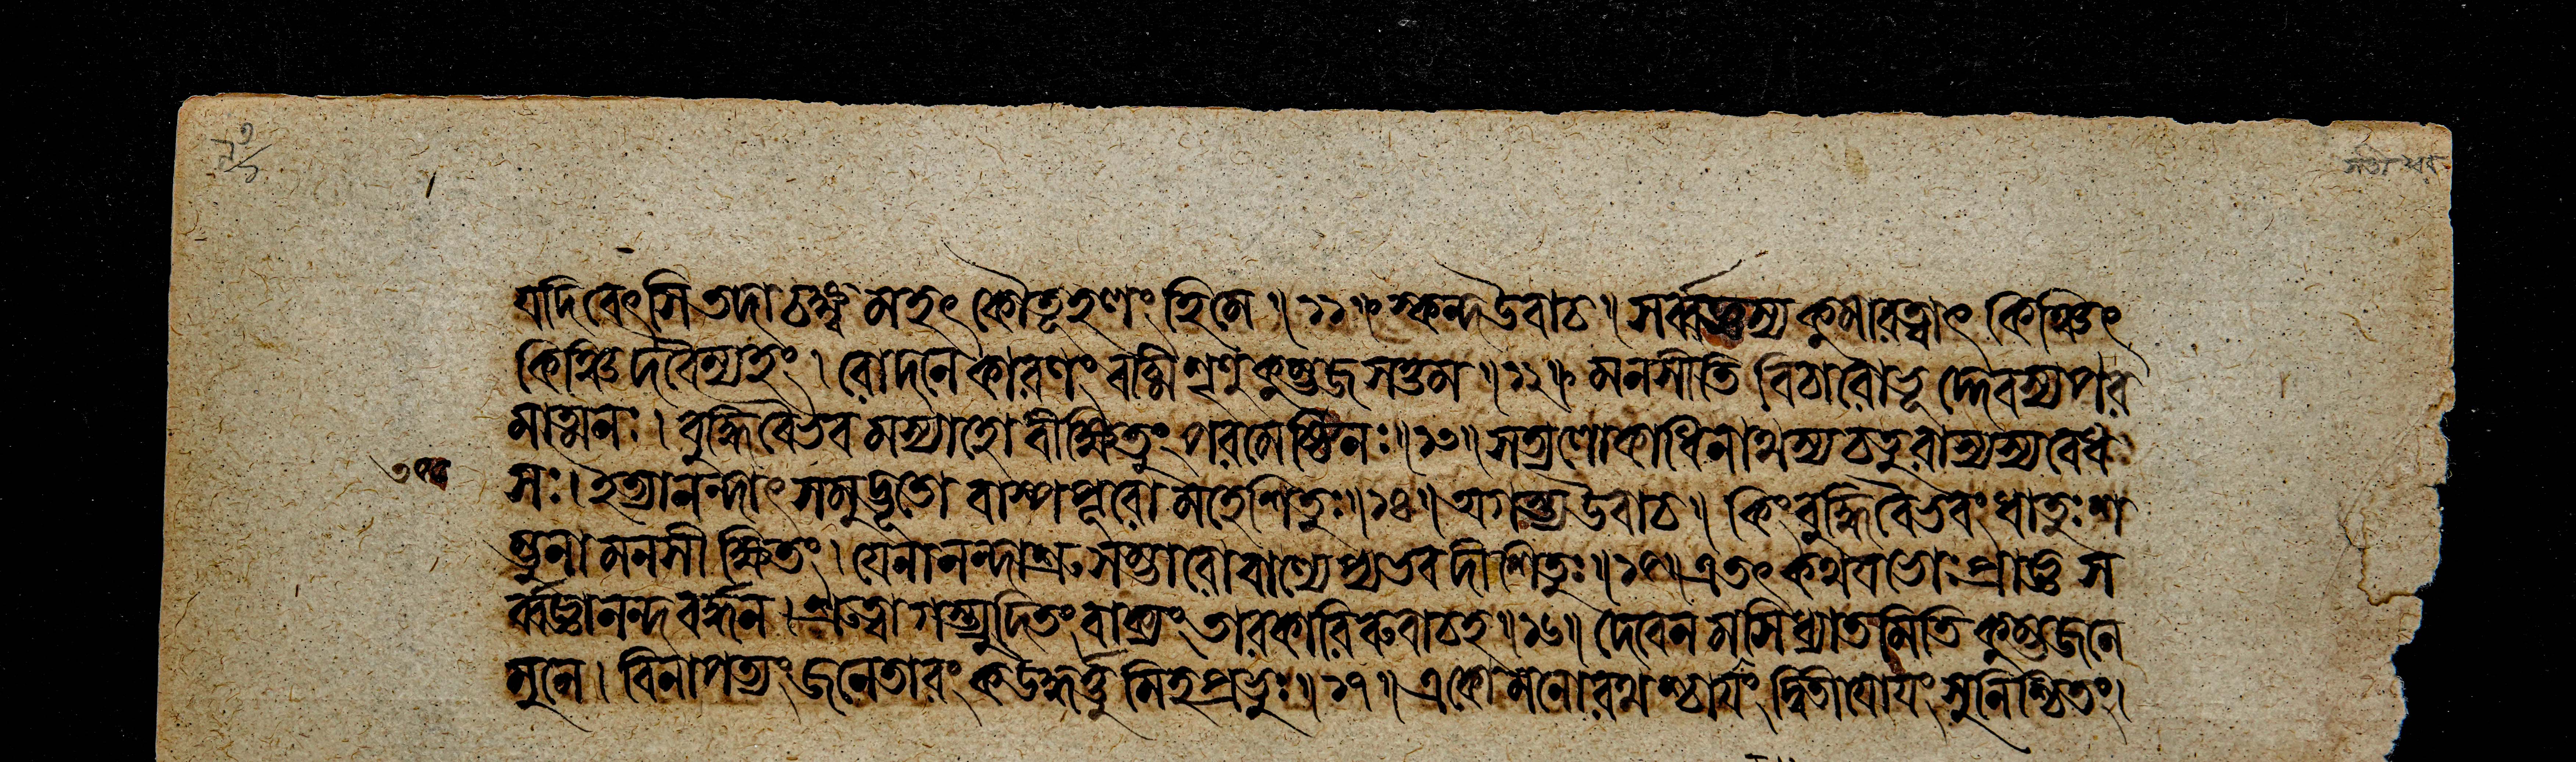 যদি বেৎসি তদাচক্ষ্ব মহৎ কৌতূহলং হি মে ॥ ১১ ॥ স্কন্দ উবাচ ॥ সৰ্ব্বজ্ঞস্য কুমাৰত্বাৎ কিঞ্চিৎ
কিঞ্চিদবৈম্যহং । ৰোদনে কাৰণং বচ্মি শৃণু কুম্ভজ সত্তম ॥ ১২ ॥ মনসীতি বিচাৰোভূদ্দেবস্য পৰ
মাত্মনঃ । বুদ্ধিবৈভবমস্যাহো বীক্ষিতুং পৰমেষ্ঠিনঃ ॥ ১৩ ॥ সত্যলোকাধিনাথস্য চতুৰাস্যস্য বেধ
সঃ । ইত্যানন্দাৎ সমুদ্ভূতো বাষ্পপূৰো মহেশিতুঃ ॥ ১৪ ॥ অগস্ত্য উবাচ ॥ কিং বুদ্ধিবৈভবং ধাতুঃ শ
ম্ভুনা মনসীক্ষিতং । যেনানন্দাশ্রুসম্ভাৰো বাল্যেপ্যভবদীশিতুঃ ॥ ১৫ ॥ এতৎ কথয ভোঃ প্রাজ্ঞ স
ৰ্ব্বজ্ঞানন্দবৰ্দ্ধন । শ্রুত্বাগস্ত্যুদিতং বাক্যং তাৰকাৰিৰুবাচ হ ॥ ১৬ ॥ দেবেন মসি ধ্যাতমিতি কুম্ভজনে
মুনে । বিনাপত্যং জনেতাৰং ক উদ্ধৰ্ত্তুমিহ প্রভুঃ ॥ ১৭ ॥ একো মনোৰথশ্চাযং দ্বিতীযোযং সুনিশ্চিতং ।